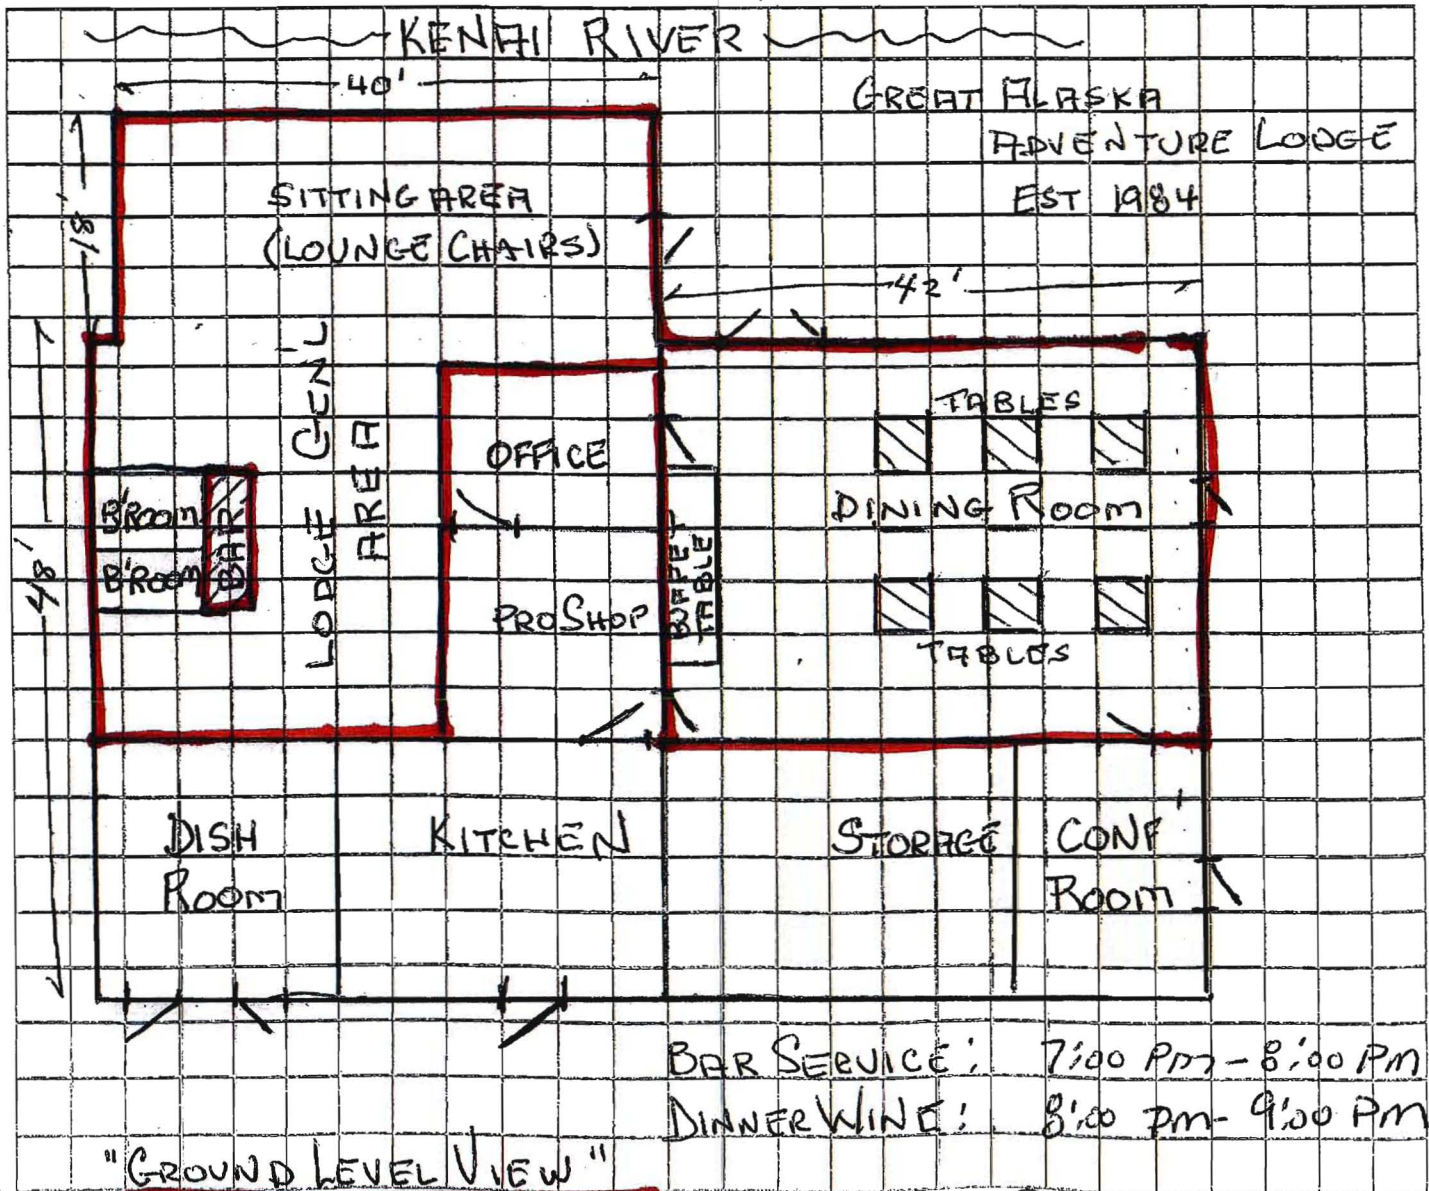 KENAI RIVER
40'
GREAT ALASKA
ADVENTURE LODGE
EST 1984
18'
SITTING AREA
(LOUNGE CHAIRS)
42'
LODGE GEN'L
AREA
OFFICE
TABLES
B'ROOM
B'ROOM
BAR
DINING ROOM
48'
PRO SHOP
BUFFET
TABLE
TABLES
DISH
ROOM
KITCHEN
STORAGE
CONF'
ROOM
BAR SERVICE: 7:00 PM - 8:00 PM
DINNER WINE: 8:00 pm - 9:00 PM
"GROUND LEVEL VIEW"